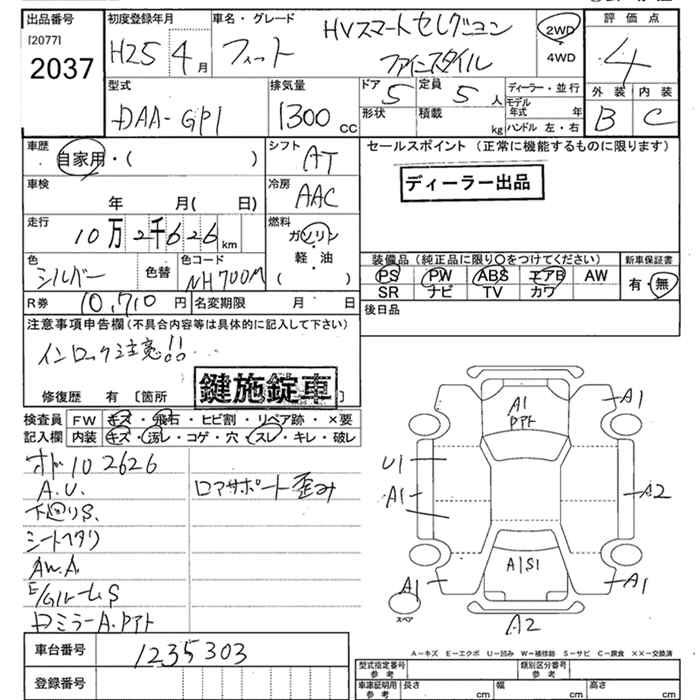 出品番号 初度登録年月 車名・グレード 評価点
[2077]
2037 H25 4月 フィット HVスマートセレクション 2WD 4
ファインスタイル 4WD
型式 排気量 ドア 定員 ディーラー・並行 外装 内装
DAA-GP1 1300cc 5 5人 モデル年式 年 B C
形状 積載 kg ハンドル 左・右
車歴 シフト セールスポイント (正常に機能するものに限ります)
自家用・( ) AT
ディーラー出品
車検 冷房
年 月( 日) AAC
走行 燃料
10万2千626km ガソリン
軽・油
( )
色 色替 色コード 装備品(純正品に限り○をつけてください) 新車保証書
シルバー NH700M PS PW ABS エアB AW 有・無
SR ナビ TV カワ
R券 10,710円 名変期限 月 日 後日品
注意事項申告欄(不具合内容等は具体的に記入して下さい)
インロック注意!!
修復歴 有 [箇所 鍵施錠車 ]
検査員 FW キズ・飛石・ヒビ割・リペア跡・×要
記入欄 内装 キズ・汚レ・コゲ・穴・スレ・キレ・破レ
オド102626
A.U. ロアサポート歪み
下廻りS.
シートヘタリ
AW.A
E/Gルーム S
ドミラーA.PPト
車台番号 1235303
登録番号
A1
PPト
A1
U1
A1
A2
A1S1
A1
A1
スペア
A2
A-キズ E-エクボ U-凹み W-補修跡 S-サビ C-腐食 XX-交換済
型式指定番号 参考 類別区分番号 参考
車庫証明用 参考 長さ cm 幅 cm 高さ cm